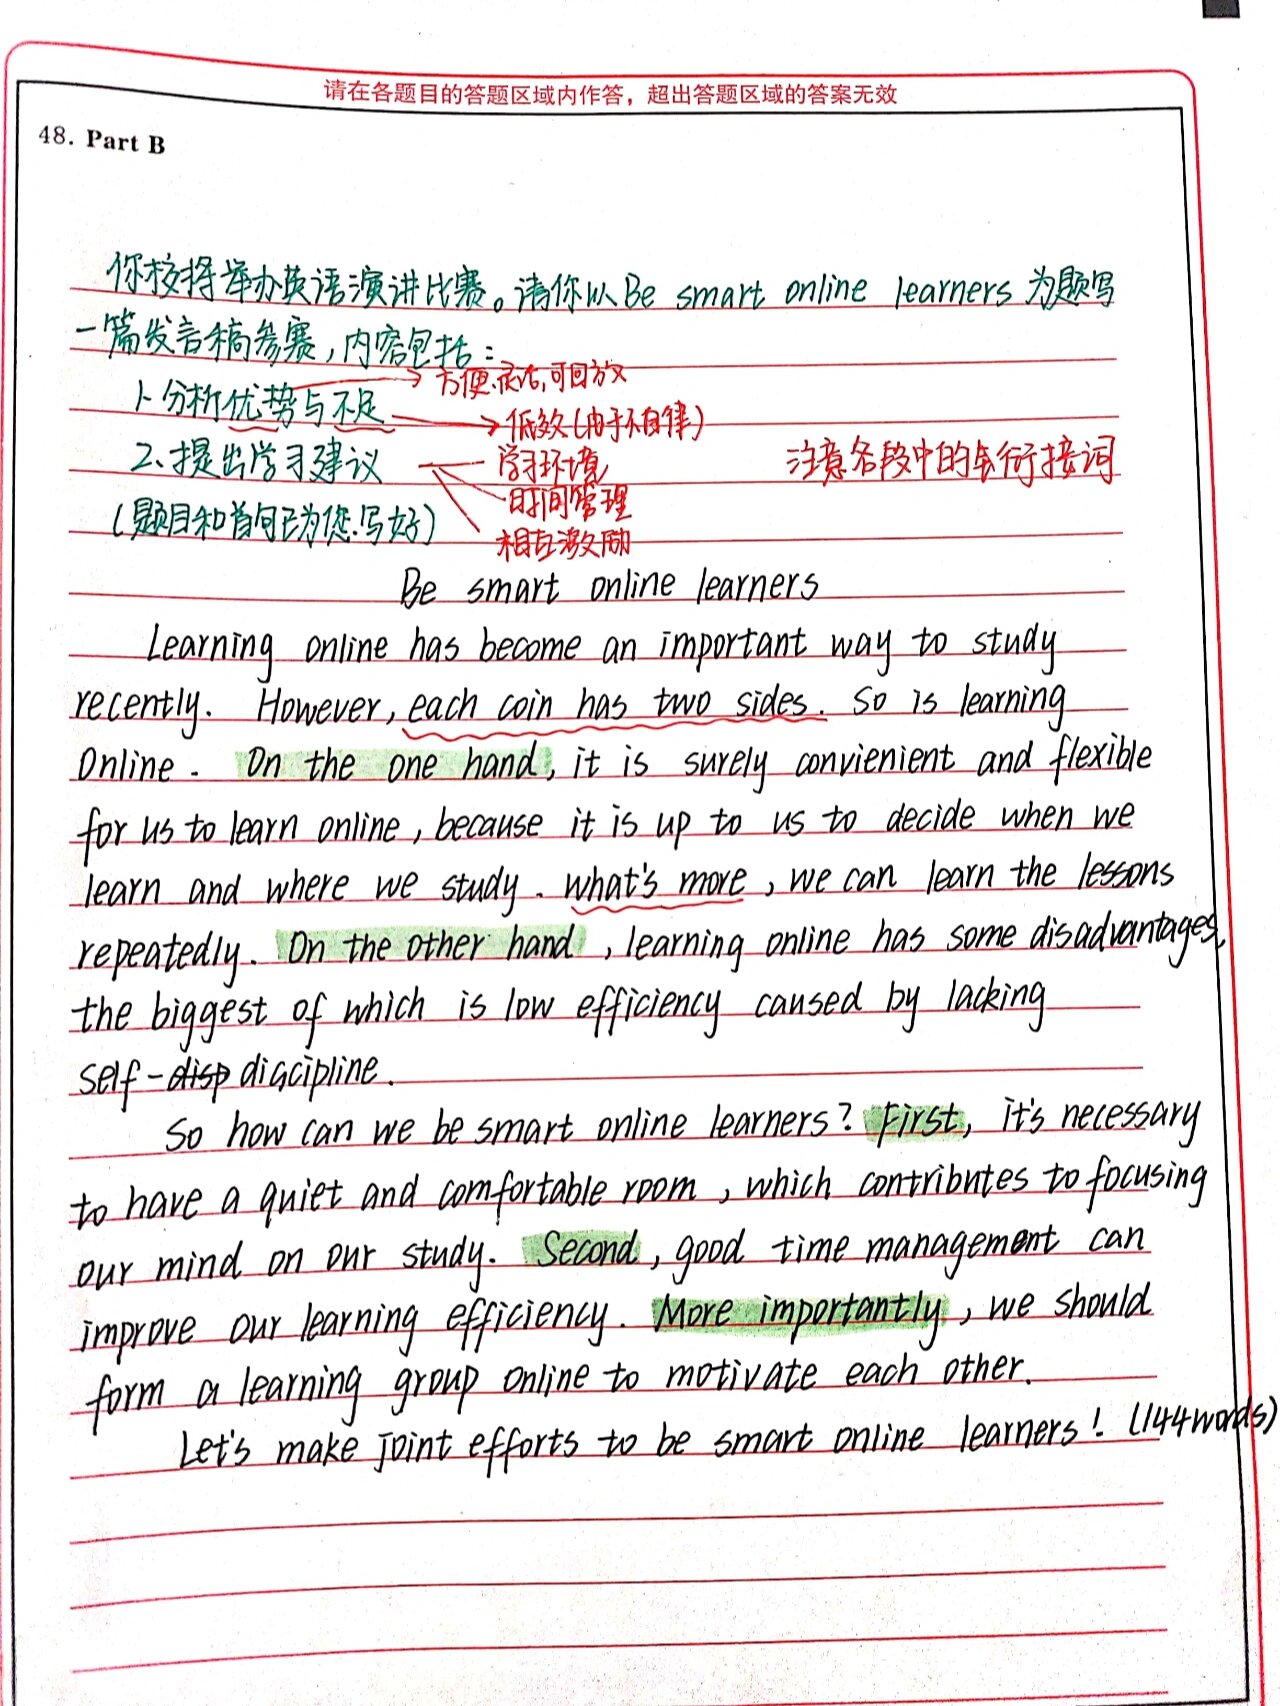 请在各题目的答题区域内作答，超出答题区域的答案无效
48. Part B
你校将举办英语演讲比赛。请你以Be smart online learners 为题写
一篇发言稿参赛，内容包括：
1、分析优势与不足
方便、灵活，可回放
低效（由于不自律）
2、提出学习建议
学习环境
时间管理
相互激励
注意各段中的衔接词
（题目和首句已为您写好）
Be smart online learners
Learning online has become an important way to study
recently. However, each coin has two sides. So is learning
Online. On the one hand, it is surely convienient and flexible
for us to learn online, because it is up to us to decide when we
learn and where we study. What's more, we can learn the lessons
repeatedly. On the other hand, learning online has some disadvantages,
the biggest of which is low efficiency caused by lacking
self-disp discipline.
So how can we be smart online learners? First, it's necessary
to have a quiet and comfortable room, which contributes to focusing
our mind on our study. Second, good time management can
improve our learning efficiency. More importantly, we should
form a learning group online to motivate each other.
Let's make joint efforts to be smart online learners! (144words)